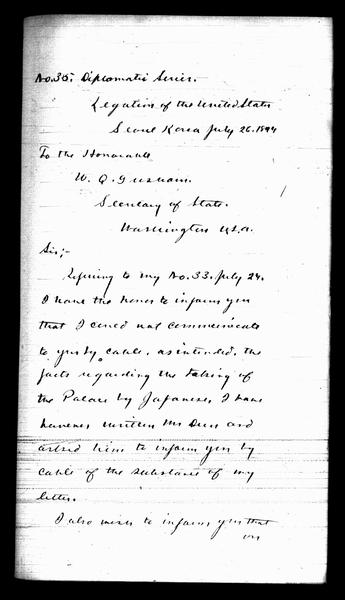 No. 35, Diplomatic Series.
Legation of the United States
Seoul Korea July 26. 1894
To the Honorable
W. Q. Gresham.
Secretary of State.
Washington U.S.A.
Sir;-
Refering to my No. 33. July 24.
I have the honor to inform you
that I could not communicate
to you by cable, as intended, the
facts regarding the taking of
the Palace by Japanese, I have
however written Mr Dun and
asked him to inform you by
cable of the substance of my
letter.
I also wish to inform you that
on